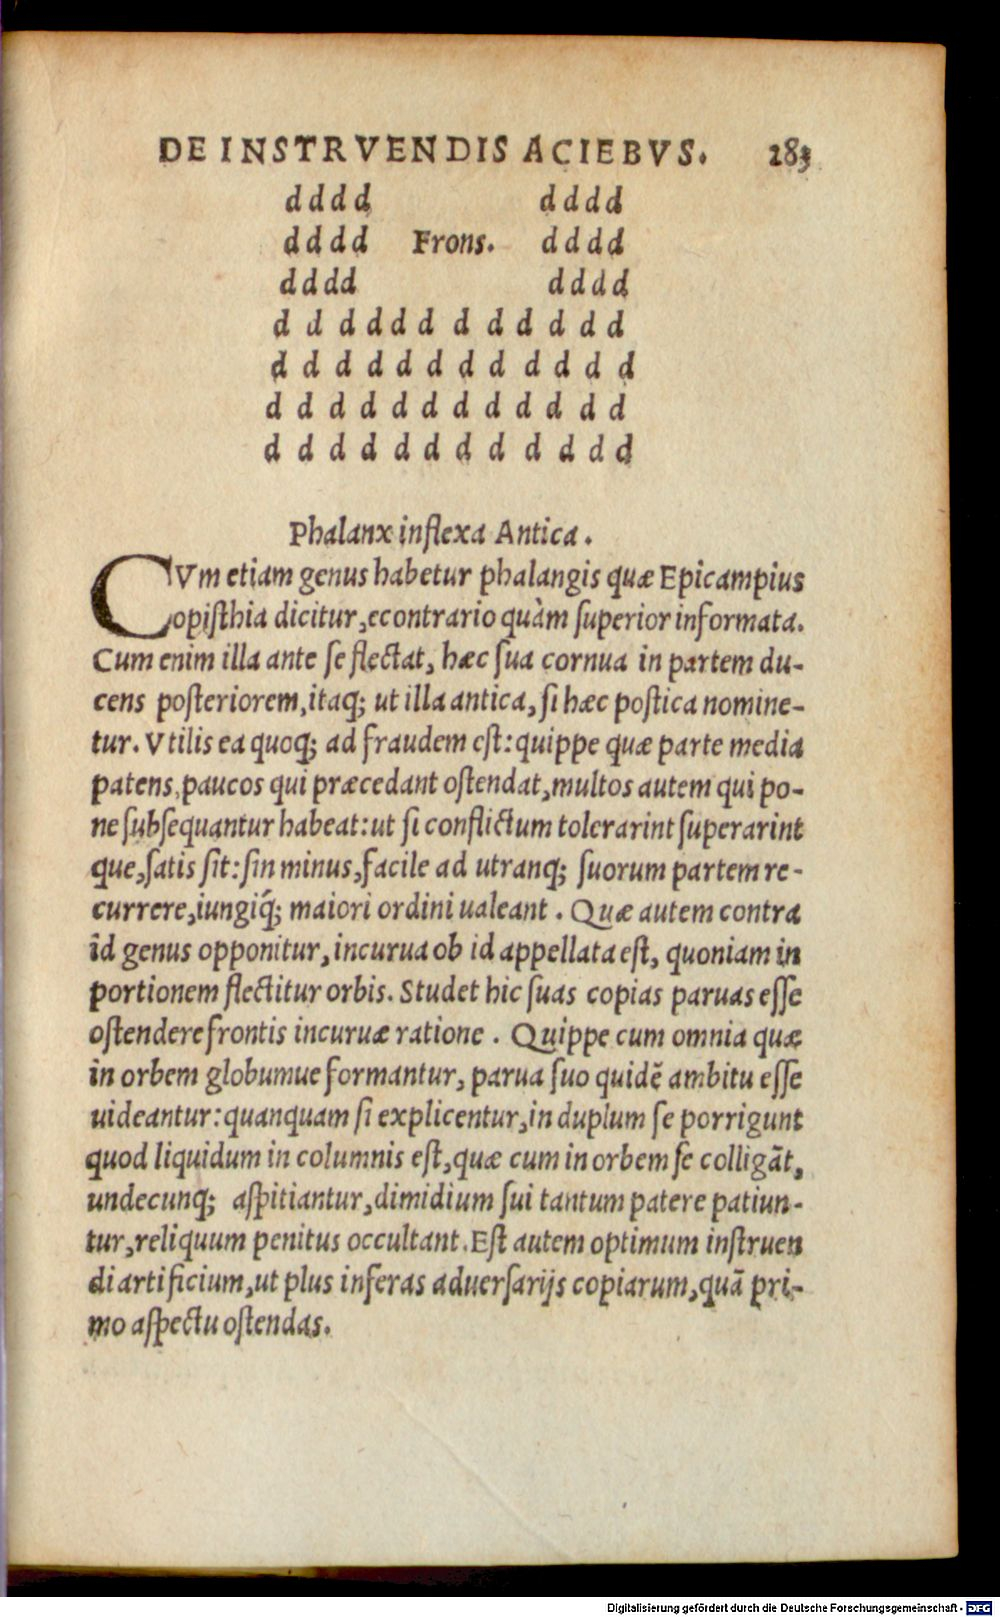 DE INSTRVENDIS ACIEBVS. 283
d d d d d d d d
d d d d Frons. d d d d
d d d d d d d d
d d d d d d d d d d d d
d d d d d d d d d d d d
d d d d d d d d d d d d
d d d d d d d d d d d d
Phalanx inflexa Antica.
CVm etiam genus habetur phalangis quæ Epicampius
opiſthia dicitur, econtrario quàm ſuperior informata.
Cum enim illa ante ſe flectat, hæc ſua cornua in partem du-
cens poſteriorem, itaq; ut illa antica, ſi hæc poſtica nomine-
tur. Vtilis ea quoq; ad fraudem eſt: quippe quæ parte media
patens, paucos qui præcedant oſtendat, multos autem qui po-
ne ſubſequantur habeat: ut ſi conflictum tolerarint ſuperarint
que, ſatis ſit: ſin minus, facile ad utranq; ſuorum partem re-
currere, iungiq́; maiori ordini ualeant. Quæ autem contra
id genus opponitur, incurua ob id appellata eſt, quoniam in
portionem flectitur orbis. Studet hic ſuas copias paruas eſſe
oſtendere frontis incuruæ ratione. Quippe cum omnia quæ
in orbem globumue formantur, parua ſuo quidē ambitu eſſe
uideantur: quanquam ſi explicentur, in duplum ſe porrigunt
quod liquidum in columnis eſt, quæ cum in orbem ſe colligāt,
undecunq; aſpitiantur, dimidium ſui tantum patere patiun-
tur, reliquum penitus occultant. Eſt autem optimum inſtruen
di artificium, ut plus inferas aduerſarijs copiarum, quā pri-
mo aſpectu oſtendas.
Digitalisierung gefördert durch die Deutsche Forschungsgemeinschaft - DFG